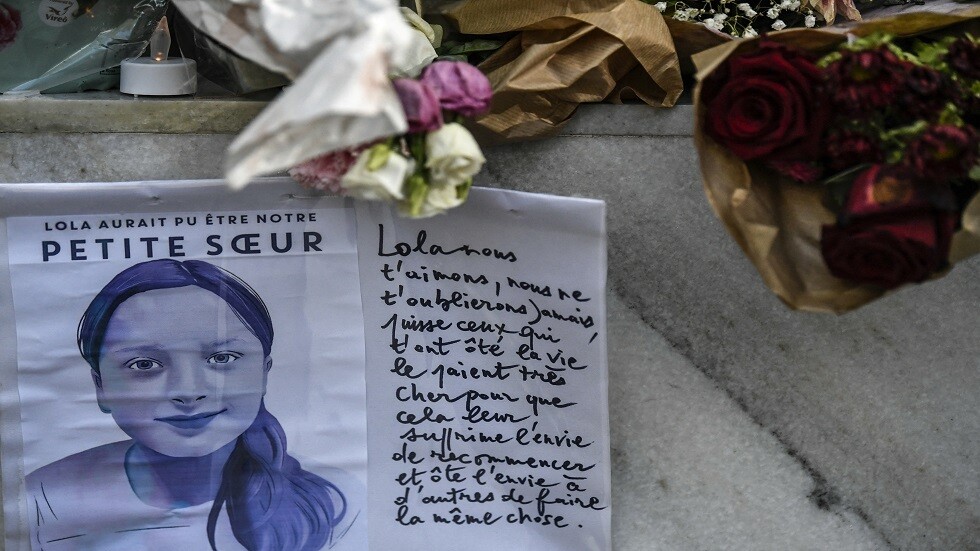 vireó
LOLA AURAIT PU ÊTRE NOTRE
PETITE SŒUR
Lola nous
t'aimons, nous ne
t'oublierons jamais,
puisse ceux qui
t'ont ôté la vie
le paient très
cher pour que
cela leur
supprime l'envie
de recommencer
et ôte l'envie à
d'autres de faire
la même chose.